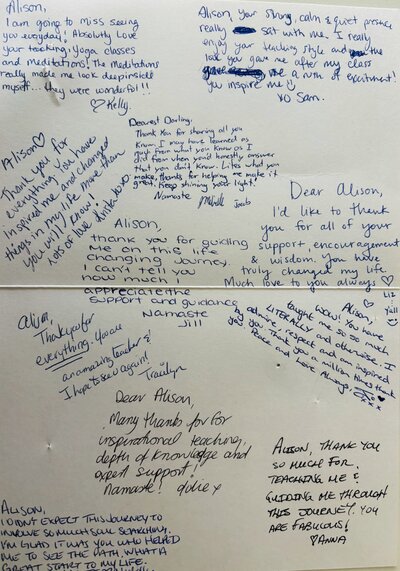 Alison,
I am going to miss seeing
you everyday! Absolutely Love
your teaching, yoga classes
and meditations! The meditations
really made me look deep inside
myself... they were wonderful!!
♡Kelly.
Alison, your strong, calm & quiet presence
really sat with me. I really
enjoy your teaching style and the
look you gave me after my class
gave me a rush of excitement!
you inspire me ☺
xo Sam.
Alison♡
Thank you for
everything. You have
inspired me and changed
things in my life more than
you will know!
lots of love
Dearest Darling,
Thank You for sharing all you
Know. I may have learned as
much from what you know as I
did from when you'd honestly answer
that you don't know. Lifes what you
make, thanks for helping me make it
great. Keep shining your light!
Namaste
Michelle
Dear Alison,
I'd like to thank
you for all of your
support, encouragement
& wisdom. You have
truly changed my life.
Much love to you always ♡
Liz
Alison,
thank you for guiding
me on this life
changing journey.
I can't tell you
how much I
appreciate the
support and guidance
Namaste
Jill
Alison,
WOW! You have
taught me so much
LITERALLY and otherwise. I
admire, respect and am inspired
by you. Thank you a million times
Peace and Love Always,
xxx
Alison,
Thank you for
everything. You are
an amazing teacher &
I hope to see you again!
Dear Alison,
Many thanks for for
inspirational teaching,
depth of knowledge and
expert support!
Namaste! Julie x
ALISON, THANK YOU
SO MUCH FOR
TEACHING ME &
GUIDING ME THROUGH
THIS JOURNEY. YOU
ARE FABULOUS!
♡ANNA
ALISON,
I DIDN'T EXPECT THIS JOURNEY TO
INVOLVE SO MUCH SOUL SEARCHING.
I'M GLAD IT WAS YOU WHO HELPED
ME TO SEE THE PATH. WHAT A
GREAT START TO MY LIFE.